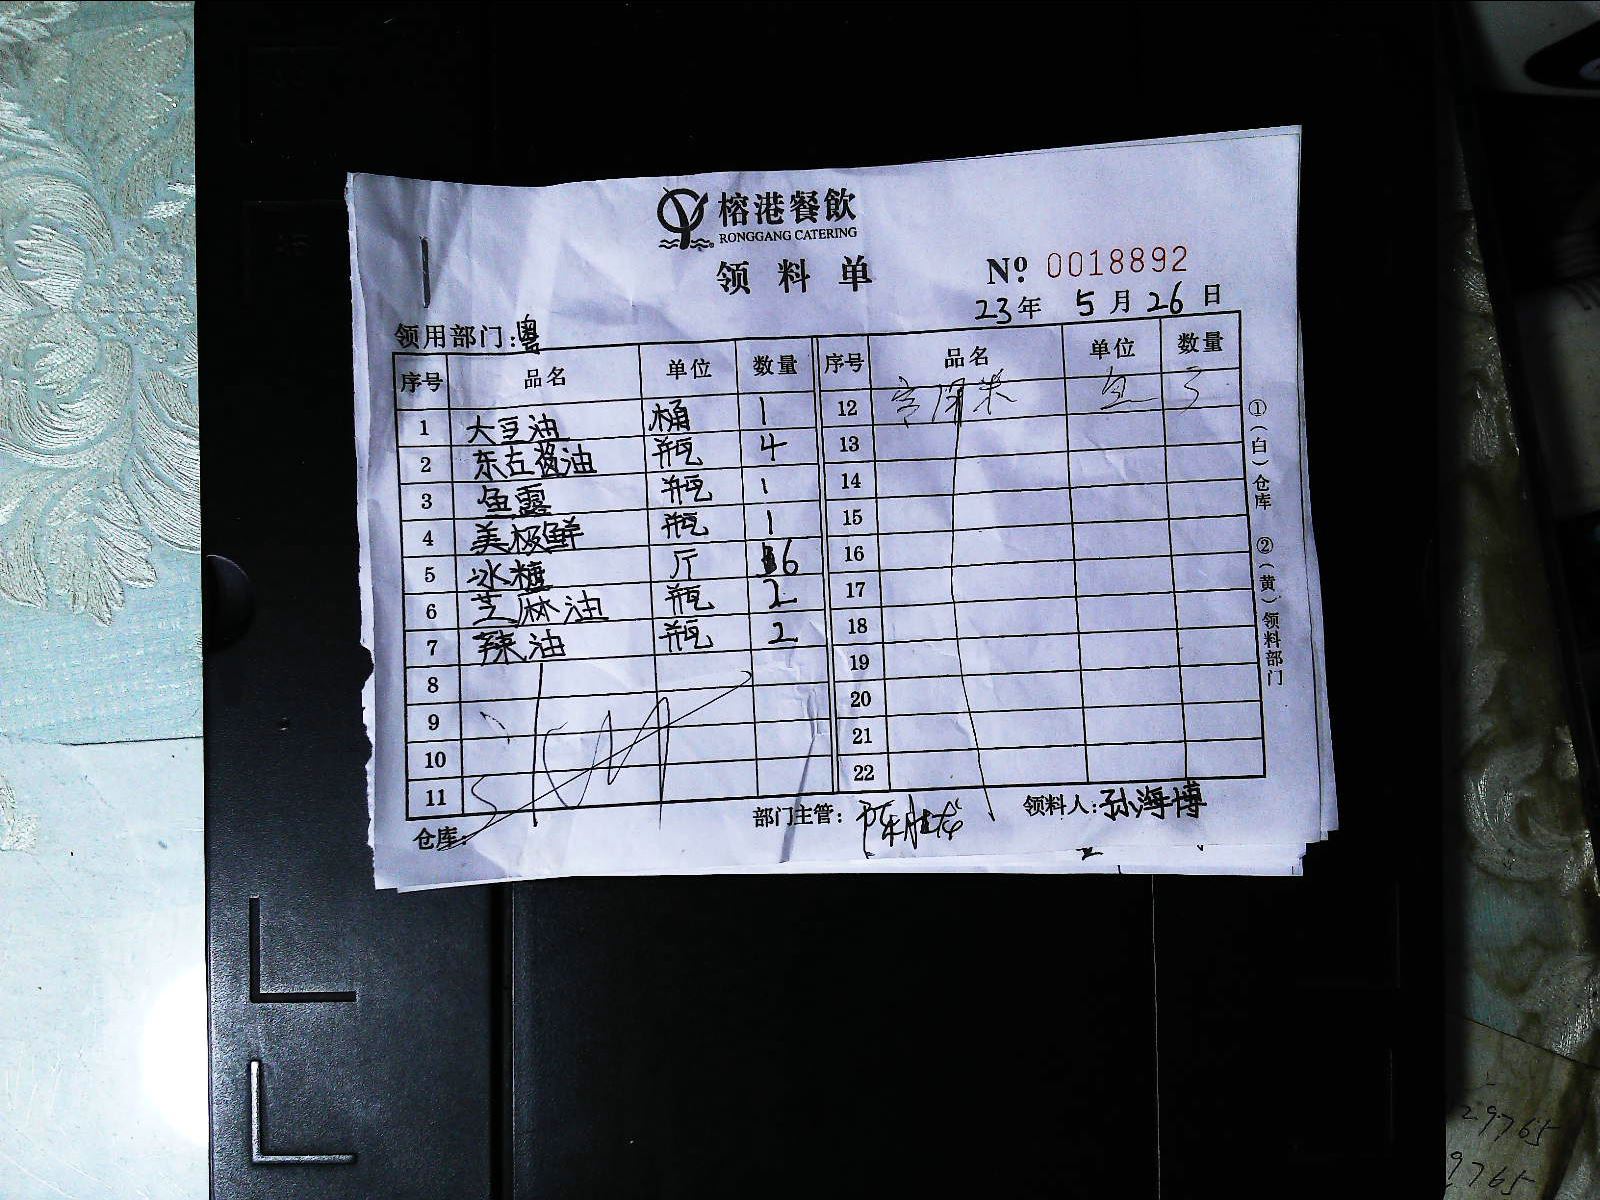 榕港餐飲
RONGGANG CATERING
领料单 Nº 0018892
23年 5月26日
领用部门:粤
序号 品名 单位 数量 序号 品名 单位 数量
1 大豆油 桶 1 12
2 东古酱油 瓶 4 13
3 鱼露 瓶 1 14
4 美极鲜 瓶 1 15
5 冰糖 斤 6 16
6 芝麻油 瓶 2 17
7 辣油 瓶 2 18
8 19
9 20
10 21
11 22
仓库: 部门主管: 领料人:孙海博
①(白)仓库 ②(黄)领料部门
29765
9765